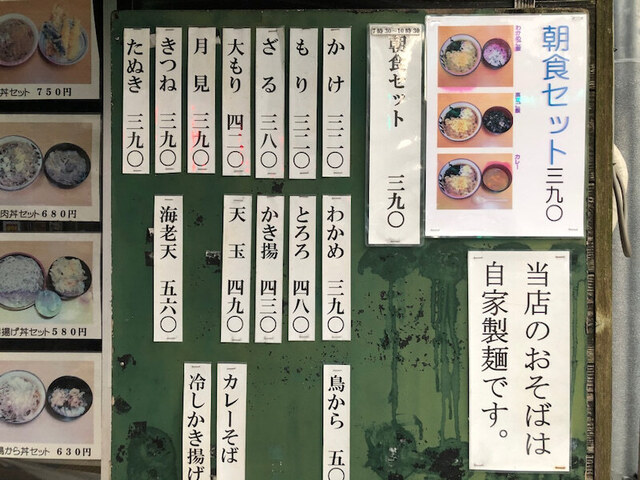 朝食セット 三九〇
わかめご飯
カレー
当店のおそばは
自家製麺です。
朝食セット 三九〇
かけ 三三〇
もり 三三〇
ざる 三八〇
大もり 四二〇
月見 三九〇
きつね 三九〇
たぬき 三九〇
わかめ 三九〇
とろろ 四八〇
かき揚 四三〇
天玉 四九〇
海老天 五六〇
鳥から 五〇
カレーそば
冷しかき揚げ
丼セット 750円
肉丼セット 680円
揚げ丼セット 580円
鶏から丼セット 630円